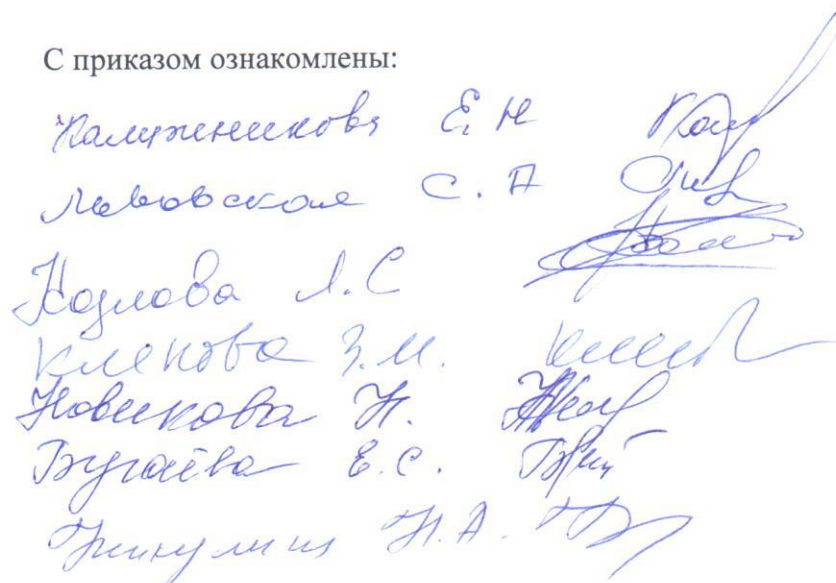 С приказом ознакомлены:
Калужникова Е.Н
Львовская С.А
Козлова Л.С
Кленова З.М.
Новикова Н.
Бугаёва Е.С.
Н.А.